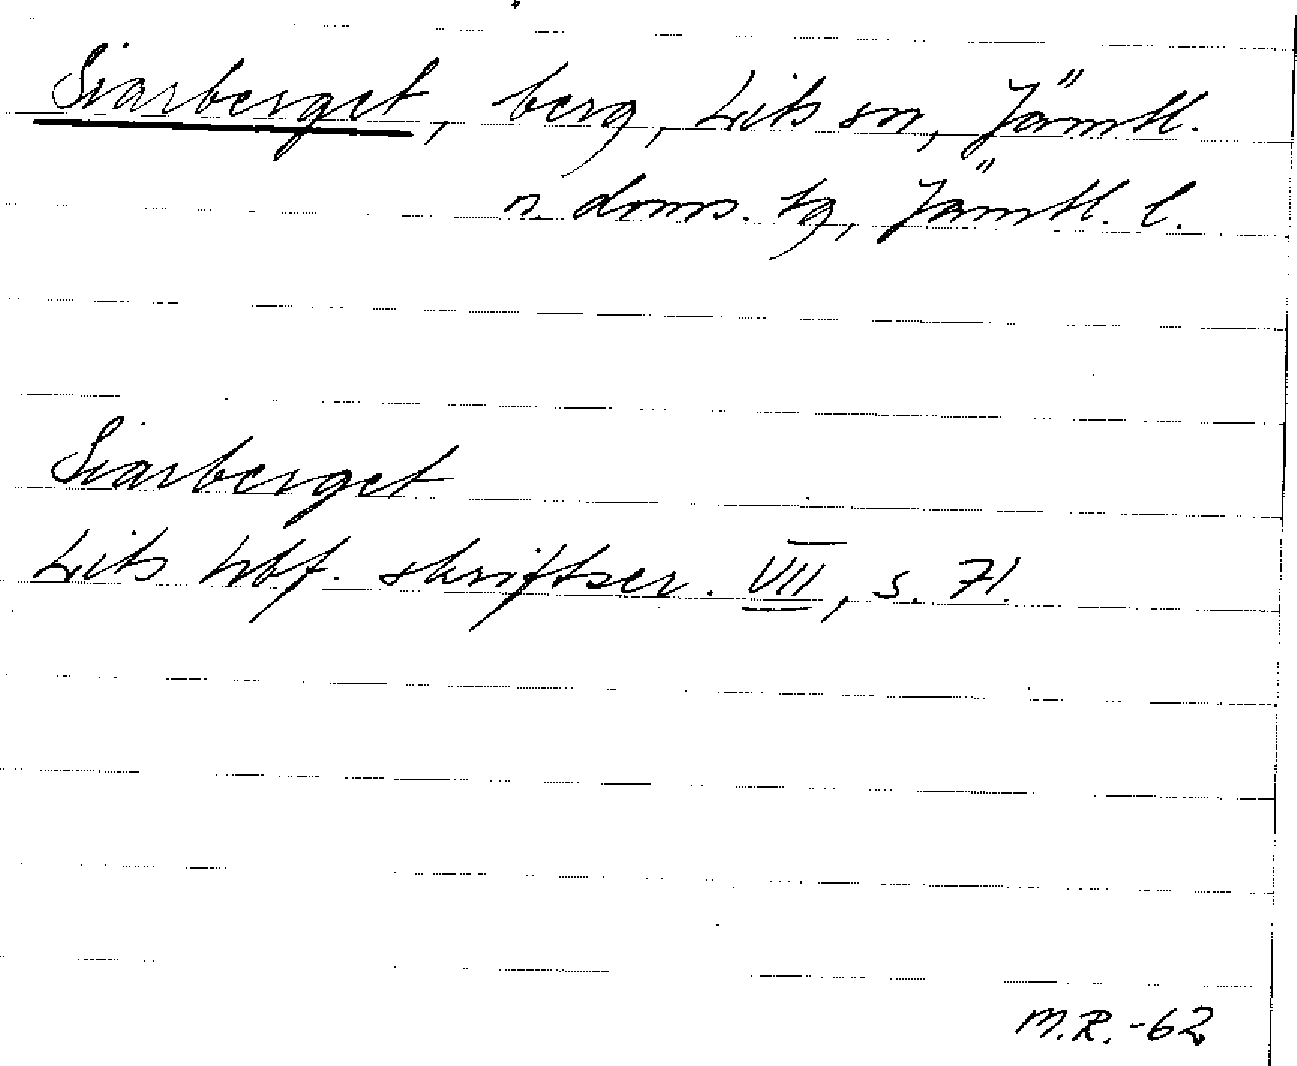 Siarberget, berg, Lits sn, Jämtl.
n. doms. tg, Jämtl. l.
Siarberget
Lits hbf. skriftser. VII, s. 71.
M.R. -62